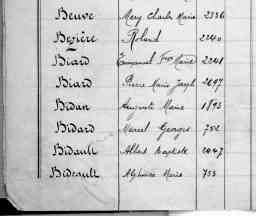 Beuve Mary Charles Marie 2336
Bezière Roland 2240
Biard Emmanuel Fois Marie 2241
Biard Pierre Marie Joseph 2697
Bidan Auguste Marie 1893
Bidard Marcel Georges 752
Bidault Albert Baptiste 2447
Bideault Alphonse Marie 753